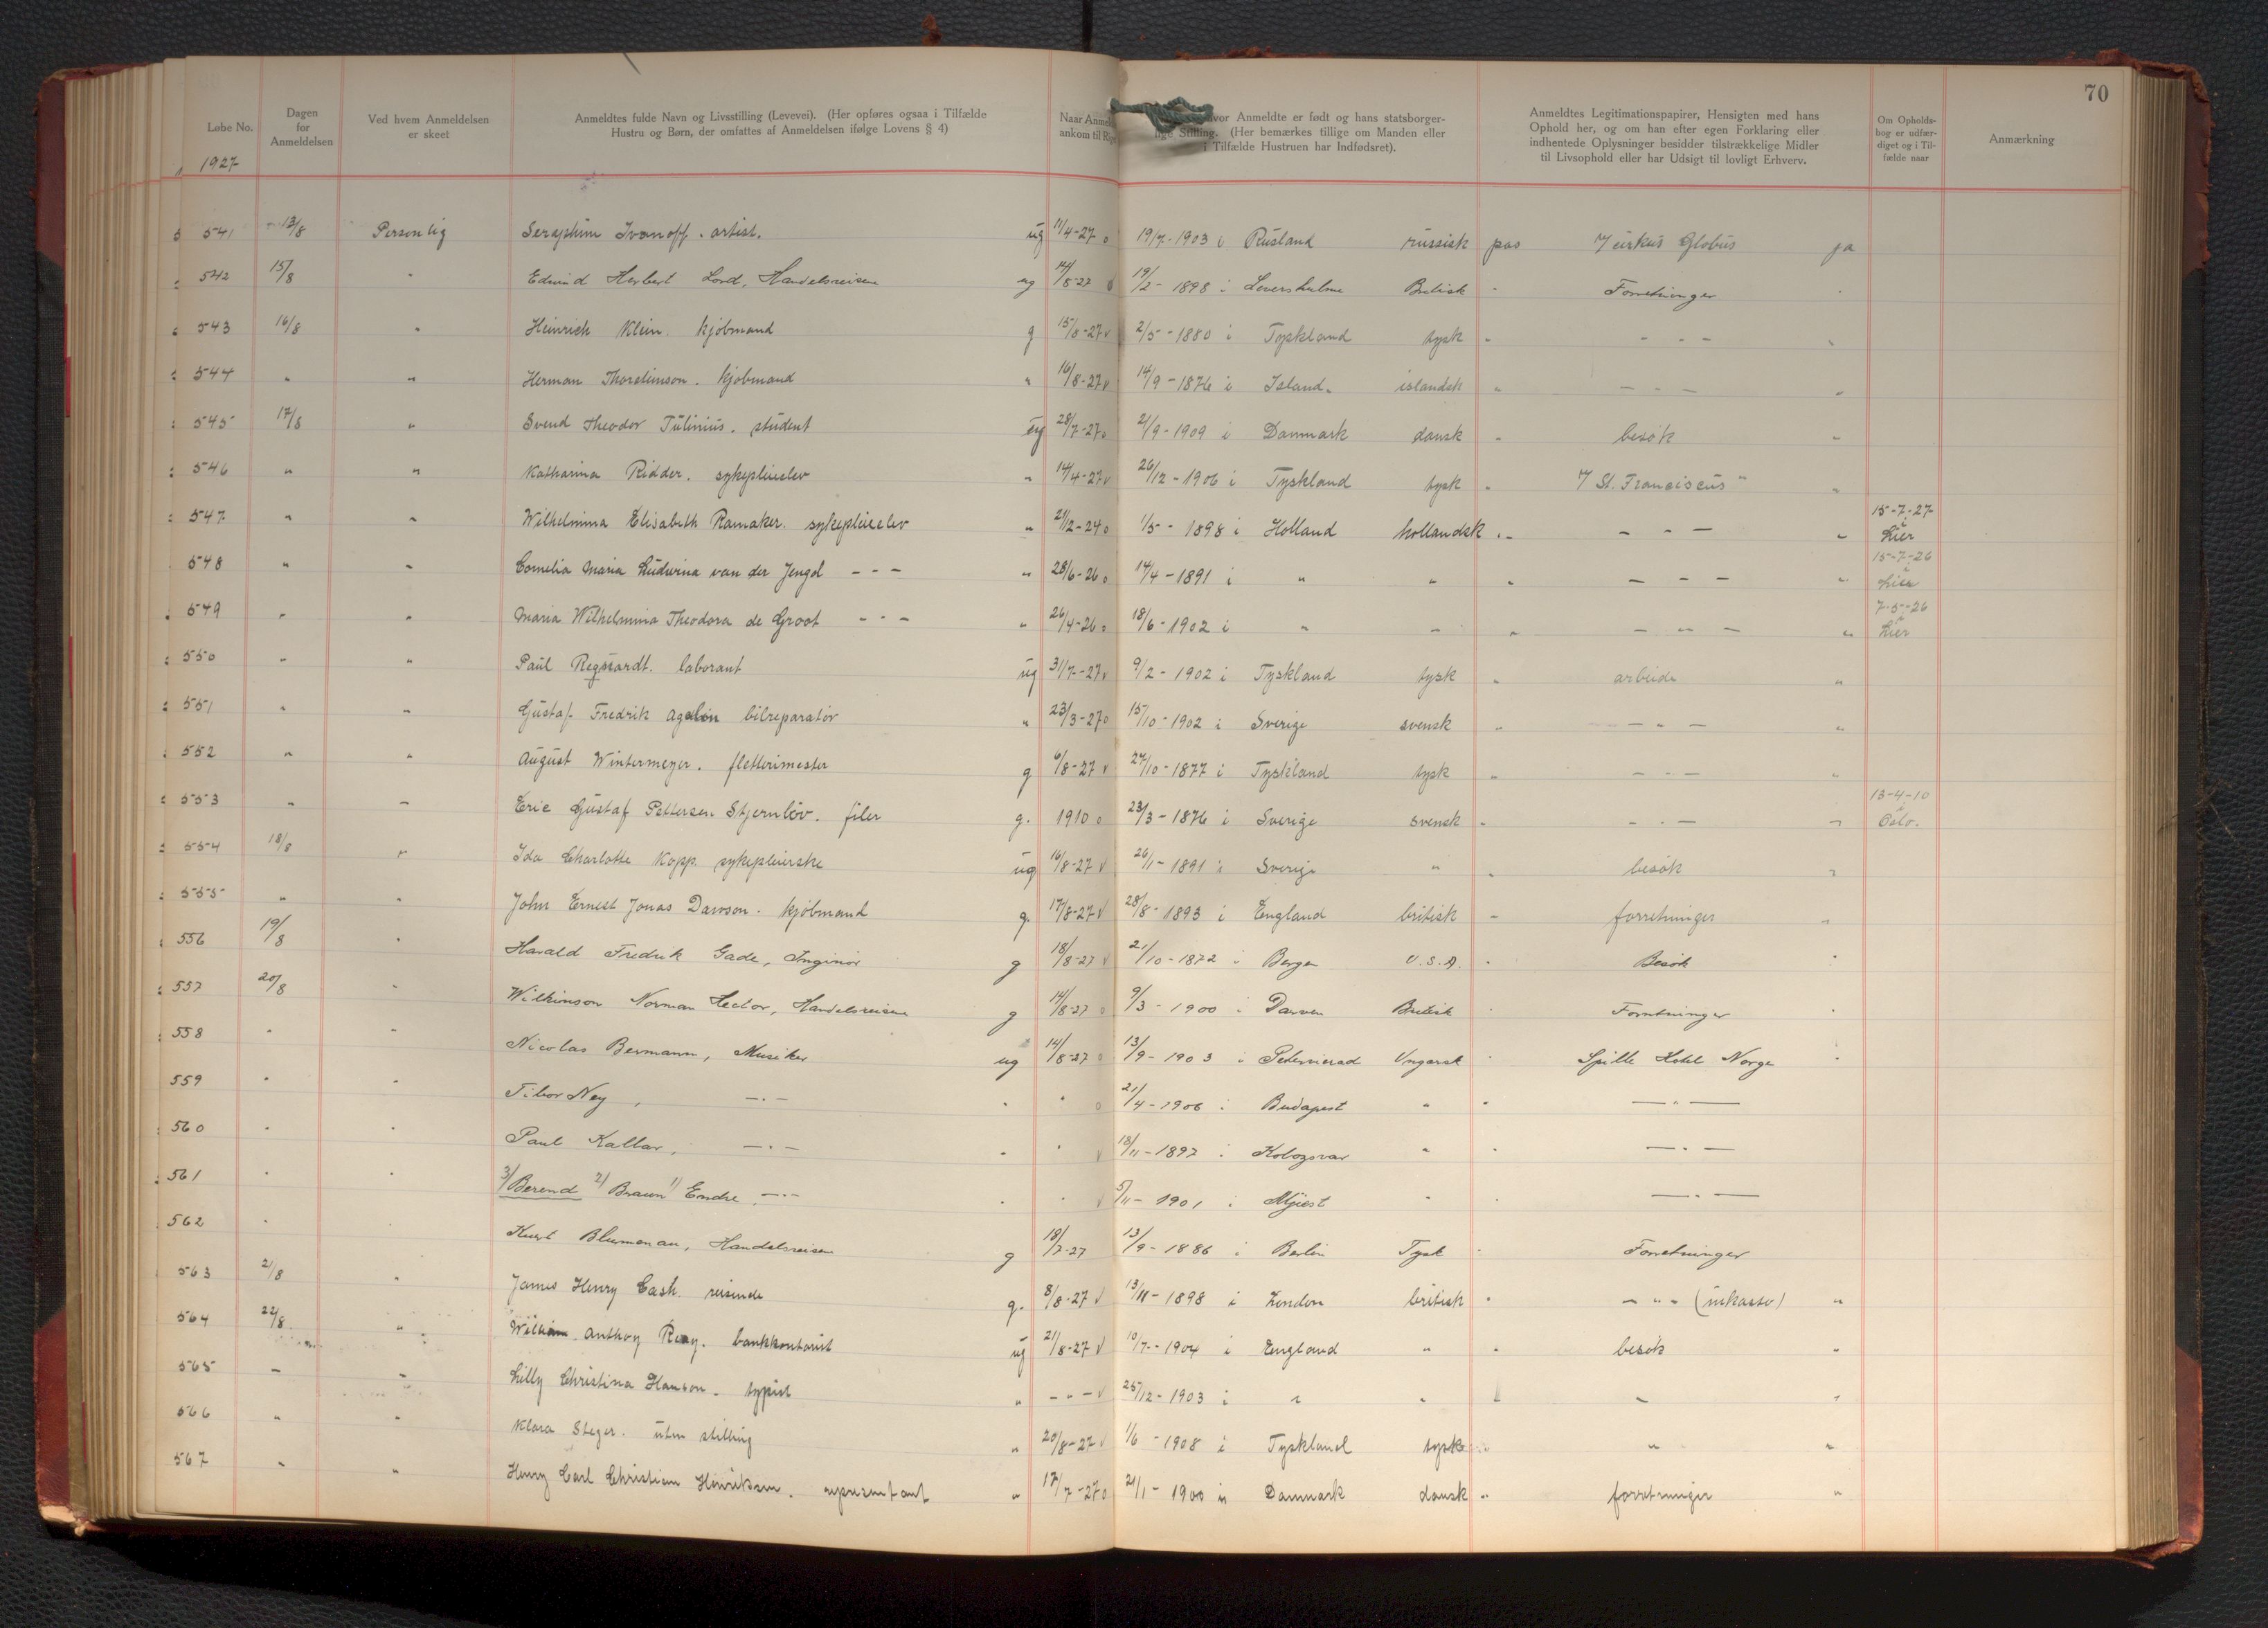 70
Løbe No.
Dagen for Anmeldelsen
Ved hvem Anmeldelsen er skeet
Anmeldtes fulde Navn og Livsstilling (Levevei). (Her opføres ogsaa i Tilfælde Hustru og Børn, der omfattes af Anmeldelsen ifølge Lovens § 4)
Naar Anmel
ankom til Rig
vor Anmeldte er født og hans statsborger-
lige Stilling. (Her bemærkes tillige om Manden eller
i Tilfælde Hustruen har Indfødsret).
Anmeldtes Legitimationspapirer, Hensigten med hans
Ophold her, og om han efter egen Forklaring eller
indhentede Oplysninger besidder tilstrækkelige Midler
til Livsophold eller har Udsigt til lovligt Erhverv.
Om Opholds-
bog er udfær-
diget og i Til-
fælde naar
Anmærkning
1927
541 13/8 Personlig Seraphim Ivanoff. artist. ug 11/4-27 o 19/7-1903 i Rusland russisk pas Zirkus Globus ja
542 15/8 " Edmund Herbert Lord, Handelsreisen ug 14/8-27 19/2-1898 i Levershulme Britisk " Forretninger "
543 16/8 " Heinrich Klein. kjöbmand g 15/8-27 v 2/5-1880 i Tyskland tysk " - " - "
544 " " Herman Thorsteinson. kjöbmand " 16/8-27 v 14/9-1876 i Island. islandsk " - " - "
545 17/8 " Svend Theodor Tulinius. student ug 28/7-27 o 21/9-1909 i Danmark dansk " besök "
546 " " Katharina Ridder. sykepleieelev " 14/4-27 v 26/12-1906 i Tyskland tysk " St. Franciscus" "
547 " " Wilhelmina Elisabeth Ramaker. sykepleieelev " 21/2-24 o 1/5-1898 i Holland hollandsk " - " - " 15-7-27 i Lier
548 " " Cornelia Maria Ludwina van der - " - " 28/6-26 o 14/4-1891 i " " " - " - " 15-7-26 i Lier
549 " " Maria Wilhelmina Theodora de Groot - " - " 26/4-26 o 18/6-1902 i " " " - " - " 7-5-26 i Lier
550 " " Paul laborant ug 31/7-27 v 9/2-1902 i Tyskland tysk " arbeide "
551 " " Gustaf Fredrik Agelin bilreparatör " 23/3-27 o 15/10-1902 i Sverige svensk " - " - "
552 " " August Wintermeyer. fletterimester g 6/8-27 v 27/10-1877 i Tyskland tysk " - " - "
553 " " Eric Gustaf Pettersen Stjernlöv. filer g. 1910 o 23/3-1876 i Sverige svensk " - " - " 13-4-10 i Oslo.
554 18/8 " Ida Charlotte Kopp. sykepleierske ug 16/8-27 v 26/1-1891 i Sverige " " besök "
555 " " John Ernest Jonas Dawson. kjöbmand g. 17/8-27 v 28/8-1893 i England britisk " forretninger "
556 19/8 " Harald Fredrik Gade, Inginiør g 18/8-27 v 21/10-1872 i Bergen U.S.A. " Besök "
557 20/8 " Wilkinson Norman Hector, Handelsreisen g 14/8-27 o 9/3-1900 i Darwen Britisk " Forretninger "
558 " " Nicolas Bermann, Musiker ug 14/8-27 o 13/9-1903 i Ungarsk " Spille Hotel Norge "
559 " " Tibor Ney, - " - " " o 21/4-1906 i Budapest " " - " -
560 " " Paul Kallar, - " - " " v 18/11-1897 i Kolozsvar " " - " -
561 " " 3/ Berend 2/ Braun 1/ Endre, - " - " " v 5/11-1901 i " " - " -
562 " Kurt Blumenau, Handelsreisen g 18/7-27 13/9-1886 i Berlin Tysk " Forretninger
563 21/8 " James Henry Cash. reisende g. 8/8-27 v 13/11-1898 i London britisk " - " - (inkasso) "
564 22/8 " William Anthoy Roay. bankkontorist ug 21/8-27 v 10/7-1904 i England " " besök "
565 " " Lilly Christina Hanson. typist " - " - v 25/12-1903 i " " " " "
566 " " Klara Steger. uten stilling " 20/8-27 v 1/6-1908 i Tyskland tysk " " "
567 " " Henry Carl Christian Henriksen. representant " 17/7-27 o 21/1-1900 i Danmark dansk " forretninger "